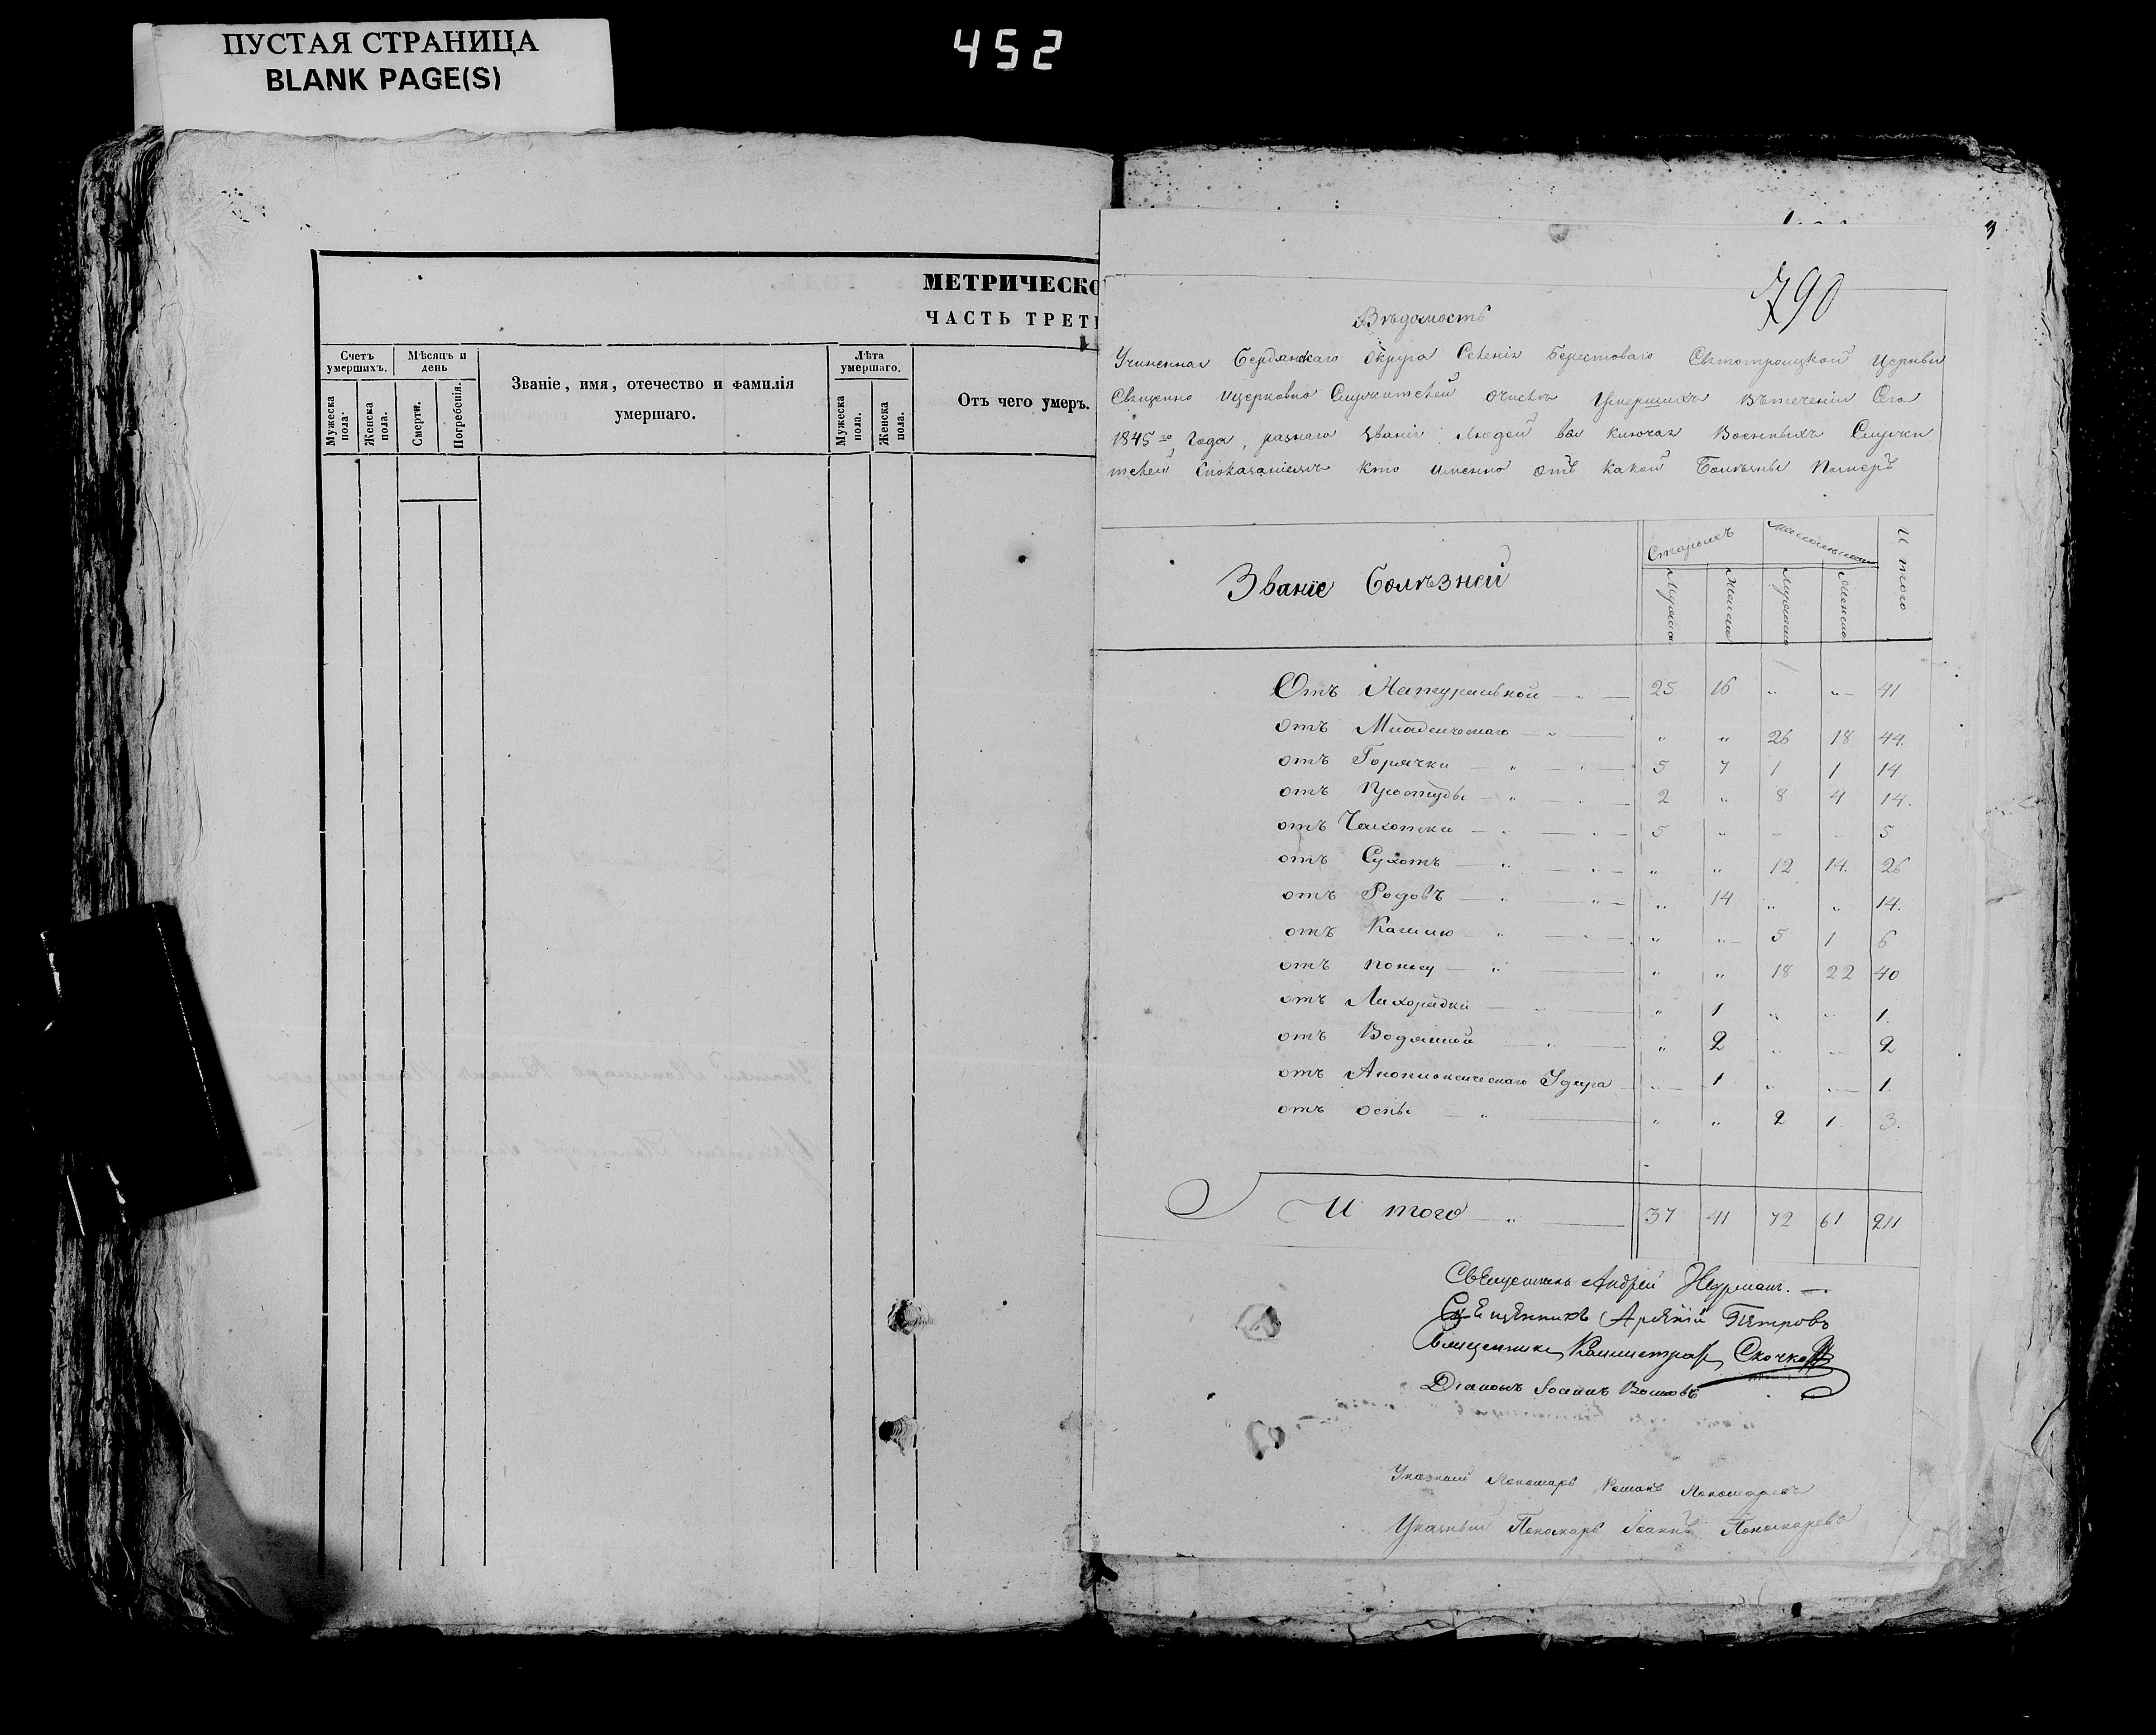 ПУСТАЯ СТРАНИЦА
BLANK PAGE(S)
452
МЕТРИЧЕСКО
ЧАСТЬ ТРЕТЬ
Счетъ умершихъ.
Мужеска пола.
Женска пола.
Мѣсяцъ и день
Смерти.
Погребенія.
Званіе, имя, отечество и фамилія
умершаго.
Лѣта умершаго.
Мужеска пола.
Женска пола.
Отъ чего умеръ.
790
Вѣдомость
Учиненная Бердянскаго Округа Селенія Берестоваго Святотроицкой Церкви
Священно ицерковно Служителей очислѣ Умершихъ втеченіи Сего
1845 го Года, разнаго Званія Людей Военныхъ Служи
телей Споказаніемъ кто именно отъ какой Болѣзны Померъ
Званіе Болѣзней
Старыхъ
Итого
Мужеска
Женска
Мужеска
Женска
Отъ Натуральной 25 16 „ „ 41
отъ Младенческаго „ „ 26 18 44.
отъ Горячки 5 7 1 1 14
отъ Простуды 2 „ 8 4 14.
отъ Чахотки 5 „ - 5
отъ Сухотъ „ „ 12 14. 26
отъ Родовъ „ 14 „ „ 14.
отъ Кашлю „ „ 5 1 6
отъ поносу „ „ 18 22 40
отъ Лихорадки „ 1 „ „ 1.
отъ Водянной „ 2 „ „ 2
отъ Апоплексическаго Удара „ 1 „ „ 1.
отъ оспы „ „ 2 1 3.
И того „ 37 41 72 61 211
Священникъ Андрей
Священникъ Арсеній Петровъ
Священникъ Скочко
Діаконъ Іоаннъ
Указный Пономарь Романъ Пономаревъ
Указный Пономарь Іоаннъ Пономаревъ